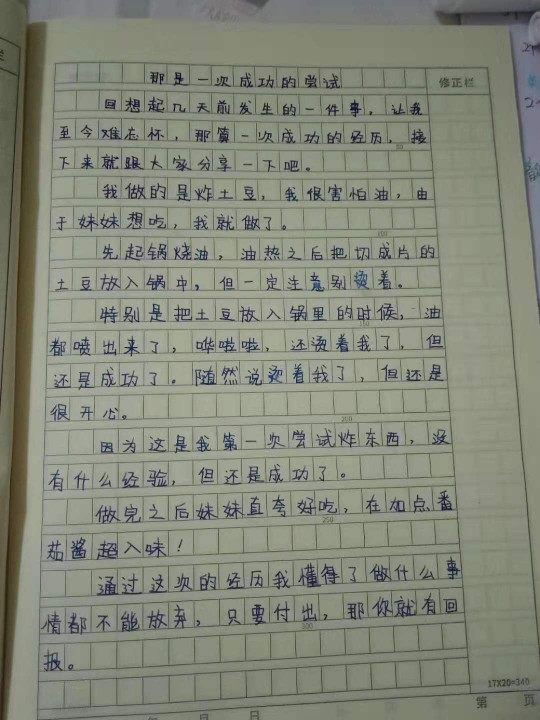 那是一次成功的尝试
修正栏
回想起几天前发生的一件事，让我
至今难忘怀，那第一次成功的经历，接
下来就跟大家分享一下吧。
我做的是炸土豆，我很害怕油，由
于妹妹想吃，我就做了。
100
先起锅烧油，油热之后把切成片的
土豆放入锅中，但一定注意别烫着。
特别是把土豆放入锅里的时候，油
150
都喷出来了，哗啦啦，还烫着我了，但
还是成功了。随然说烫着我了，但还是
很开心。
200
因为这是我第一次尝试炸东西，没
有什么经验，但还是成功了。
做完之后妹妹直夸好吃，在加点番
250
茄酱超入味！
通过这次的经历我懂得了做什么事
情都不能放弃，只要付出，那你就有回
300
报。
17X20=340
年 月 日 第 页